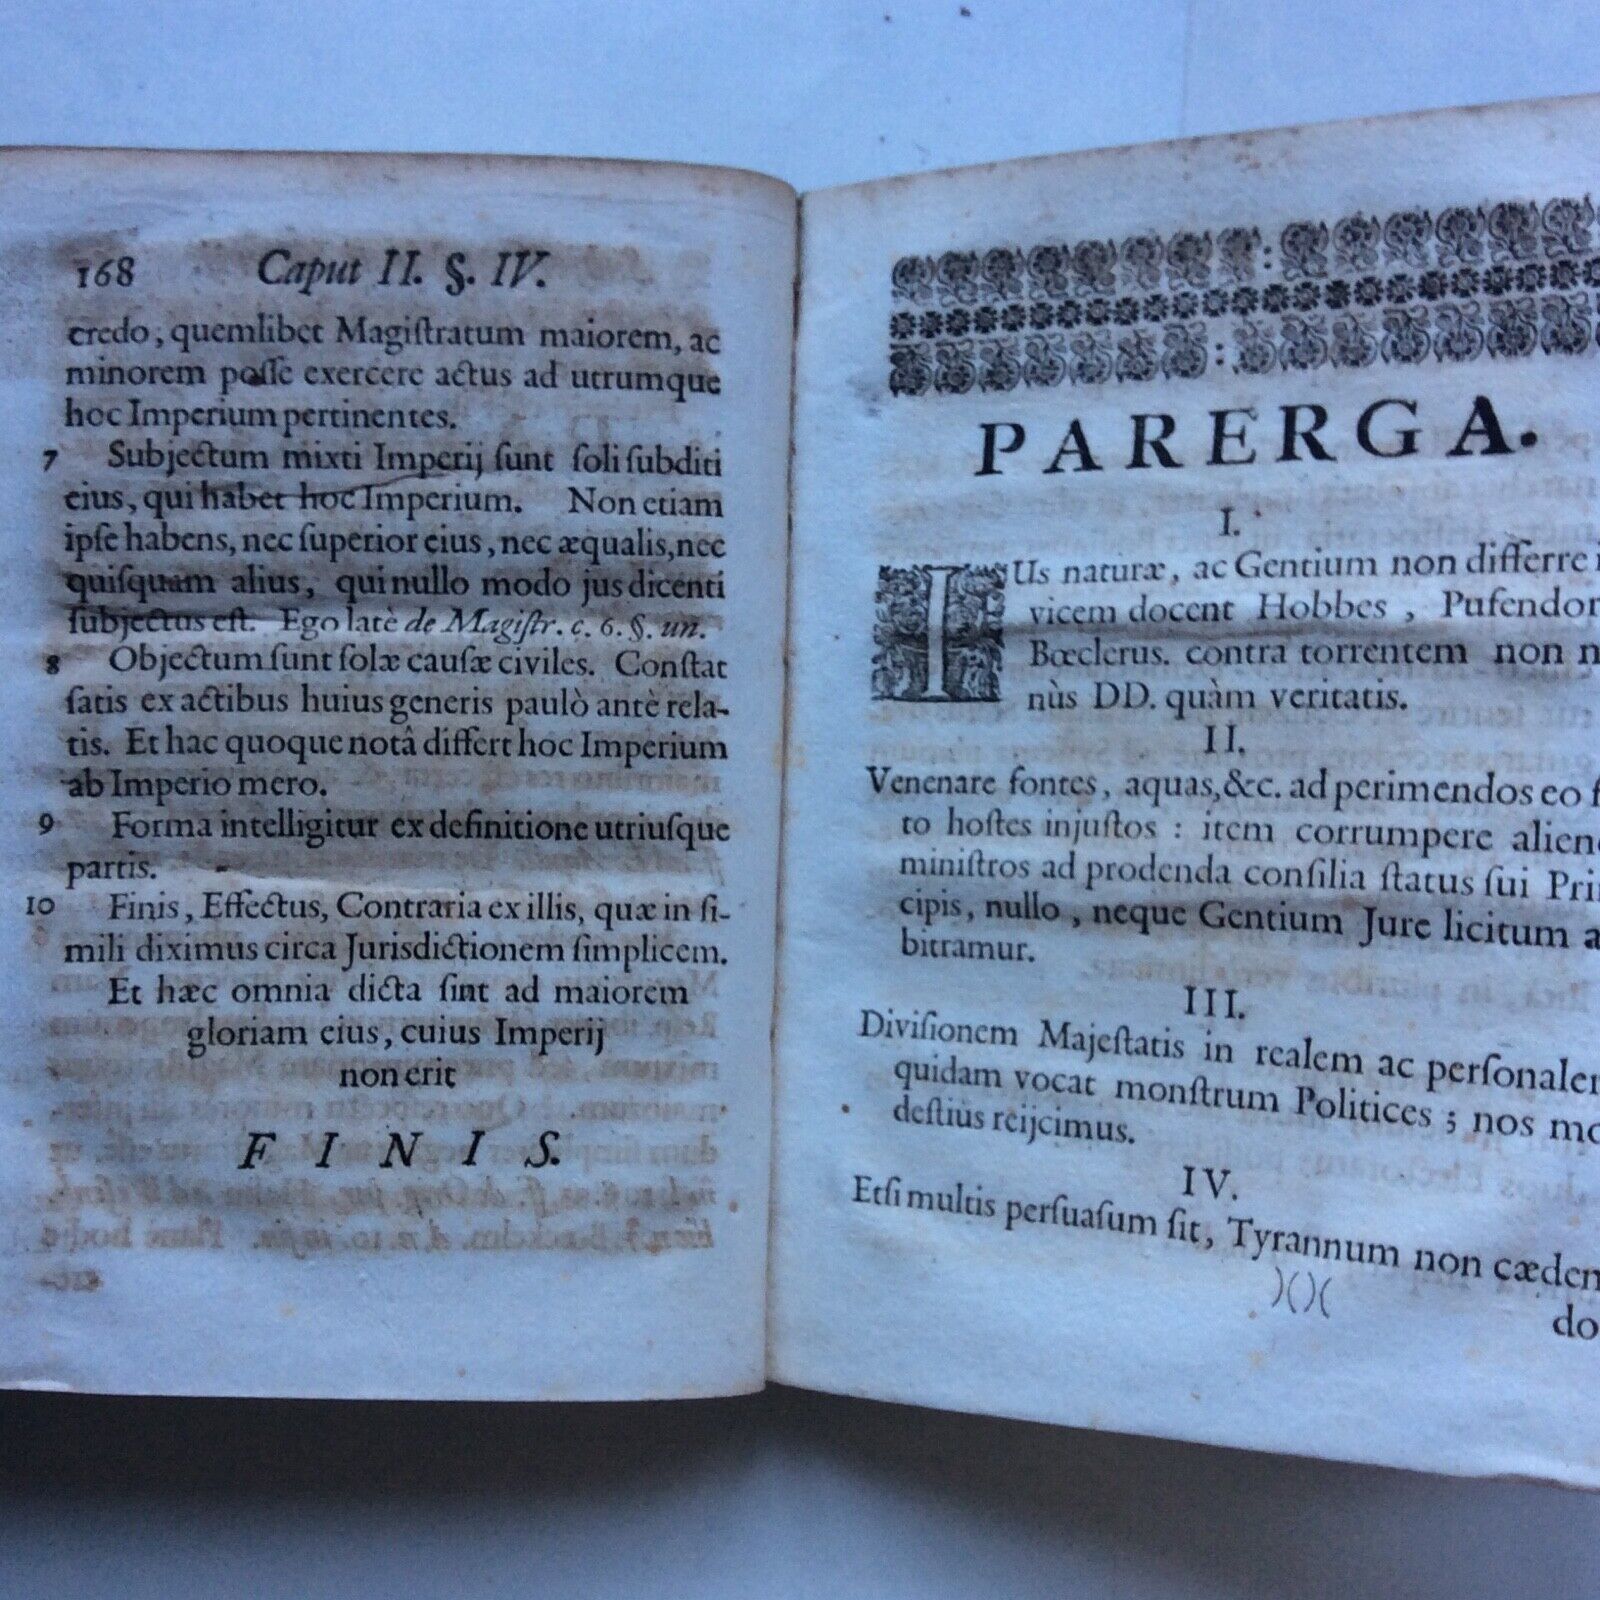 168 Caput II. §. IV.
credo, quemlibet Magiſtratum maiorem, ac
minorem poſſe exercere actus ad utrumque
hoc Imperium pertinentes.
7 Subjectum mixti Imperij ſunt ſoli ſubditi
eius, qui habet hoc Imperium. Non etiam
ipſe habens, nec ſuperior eius, nec æqualis, nec
quiſquam alius, qui nullo modo jus dicenti
ſubjectus eſt. Ego latè de Magiſtr. c. 6. §. un.
8 Objectum ſunt ſolæ cauſæ civiles. Conſtat
ſatis ex actibus huius generis paulò antè rela-
tis. Et hac quoque notâ differt hoc Imperium
ab Imperio mero.
9 Forma intelligitur ex definitione utriuſque
partis.
10 Finis, Effectus, Contraria ex illis, quæ in ſi-
mili diximus circa Jurisdictionem ſimplicem.
Et hæc omnia dicta ſint ad maiorem
gloriam eius, cuius Imperij
non erit
FINIS.
PARERGA.
I.
IUs naturæ, ac Gentium non differre i
vicem docent Hobbes, Pufendor
Bœclerus. contra torrentem non n
nùs DD. quàm veritatis.
II.
Venenare fontes, aquas, &c. ad perimendos eo f
to hoſtes injuſtos: item corrumpere alien
miniſtros ad prodenda conſilia ſtatus ſui Prin
cipis, nullo, neque Gentium Jure licitum a
bitramur.
III.
Diviſionem Majeſtatis in realem ac perſonale
quidam vocat monſtrum Politices; nos mo
deſtiùs reijcimus.
IV.
Etſi multis perſuaſum ſit, Tyrannum non cæden
)()(
do